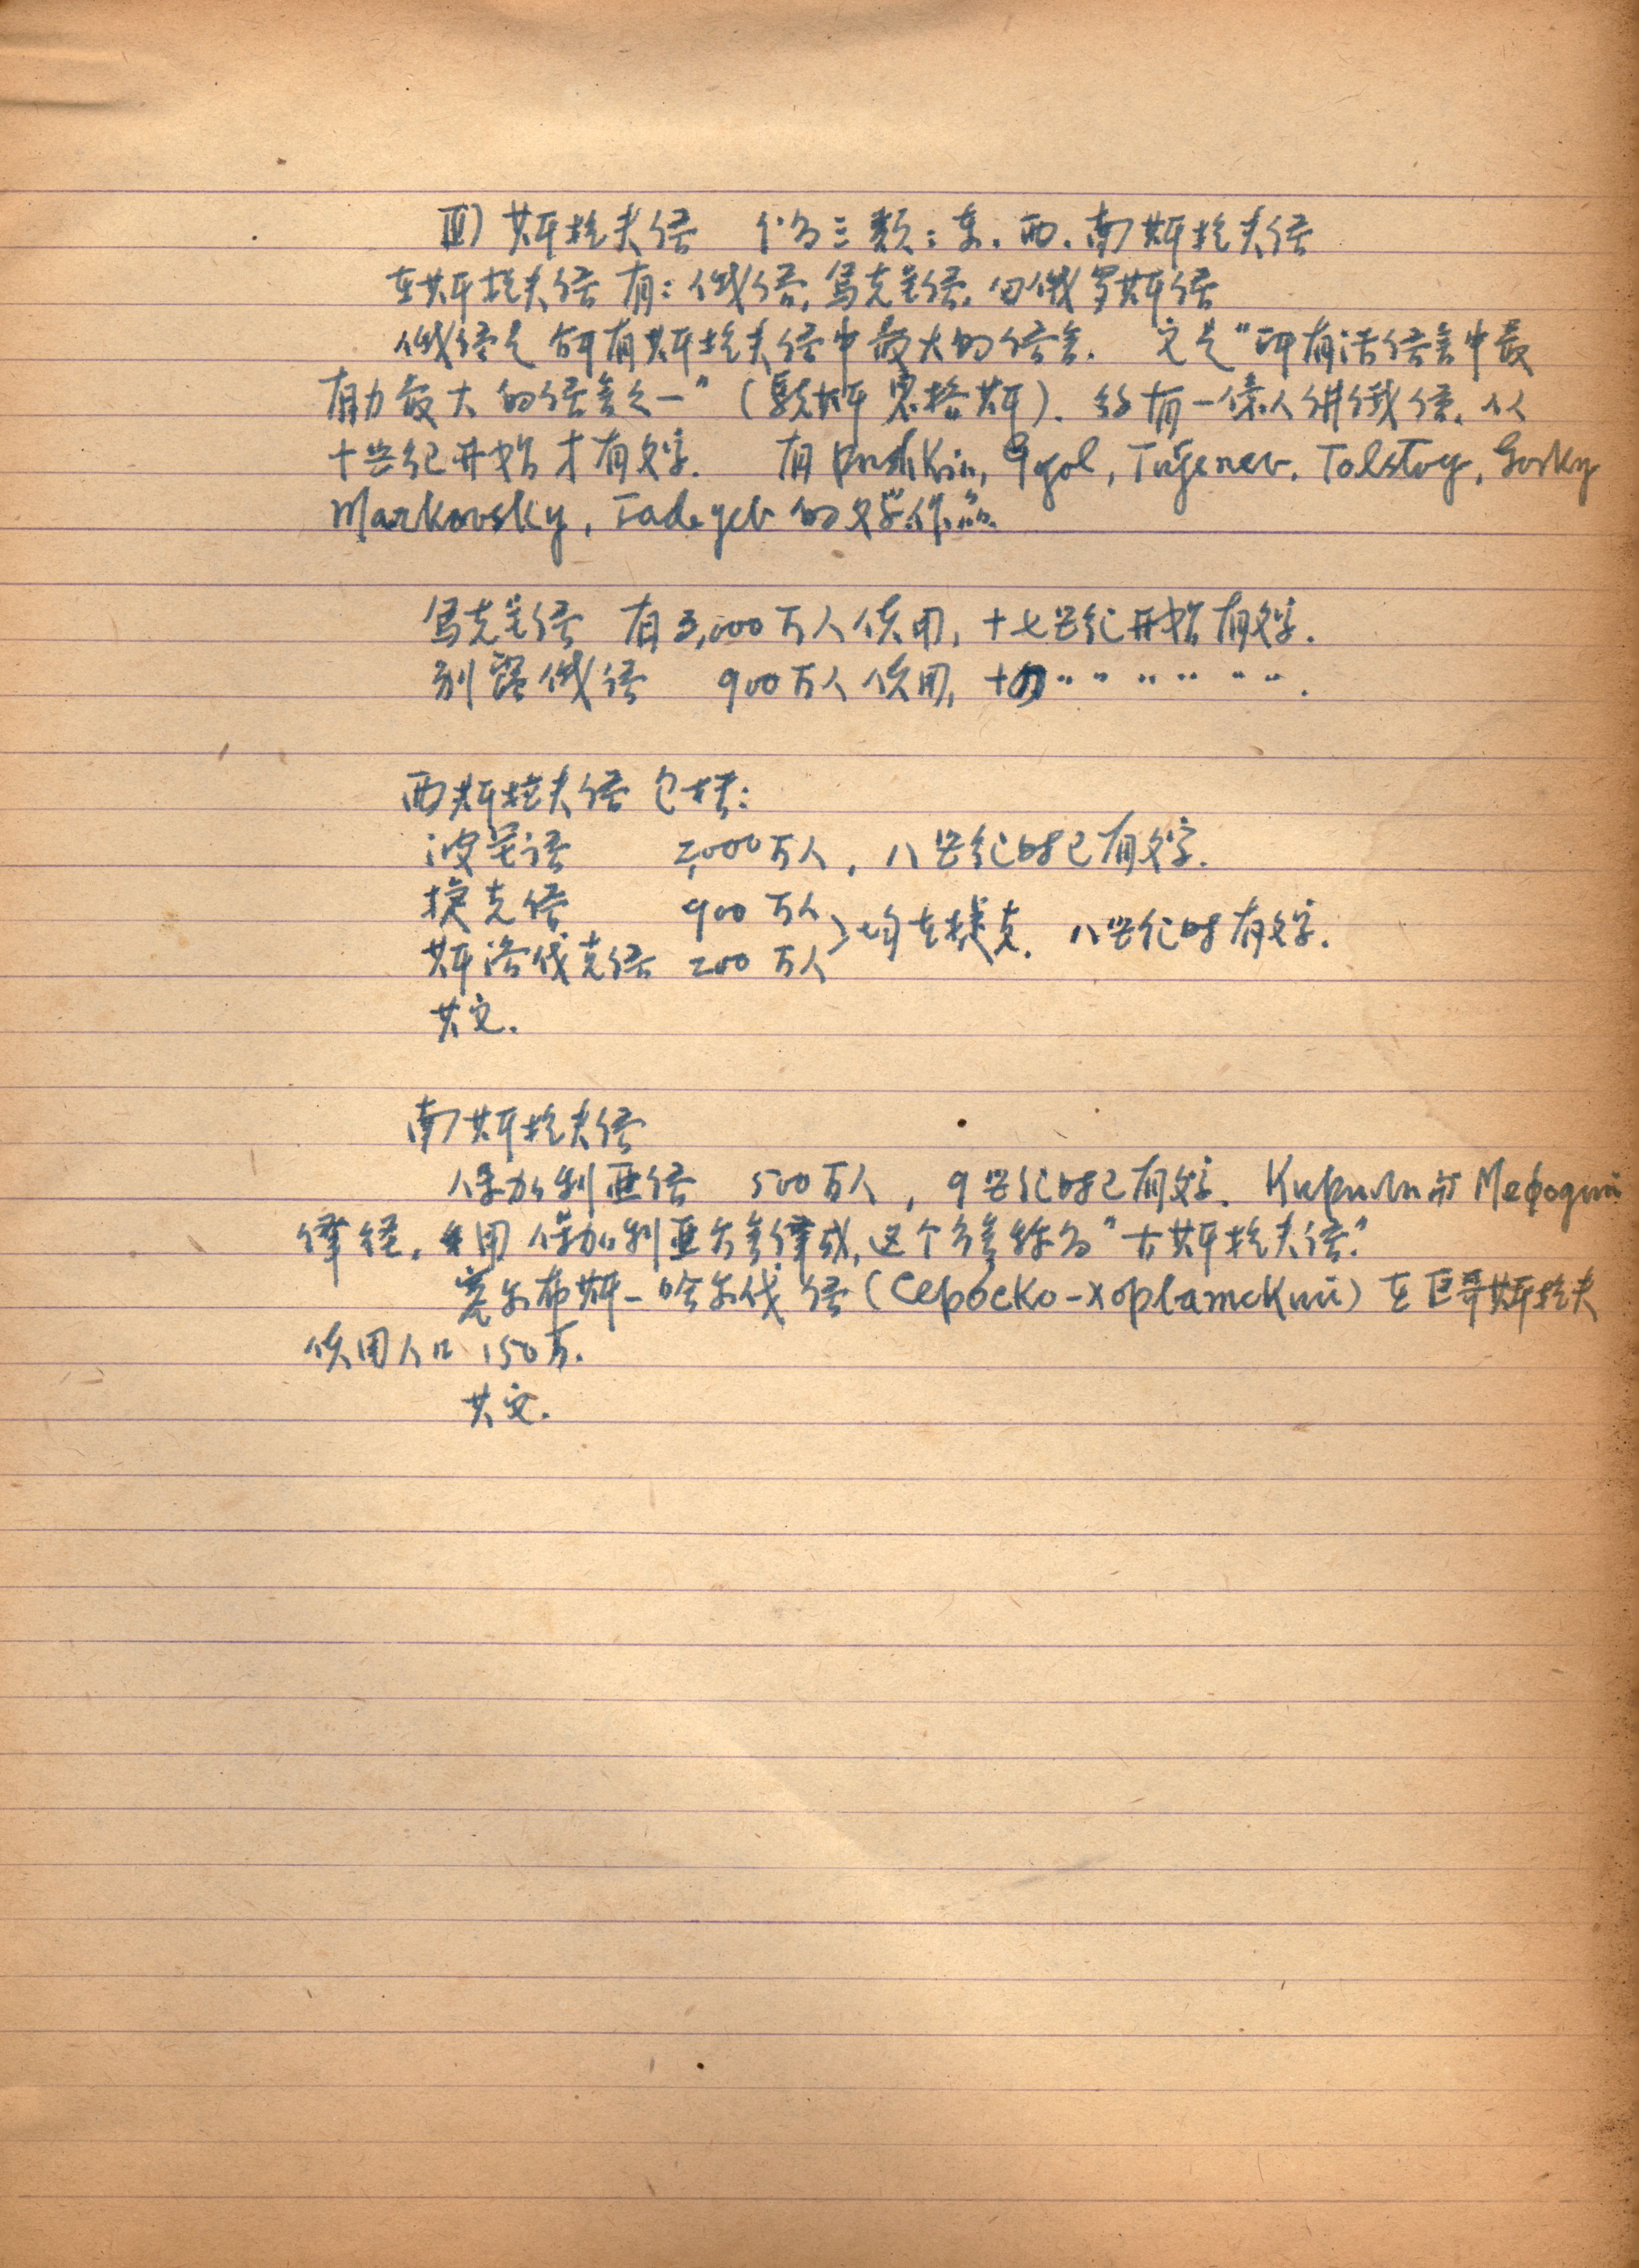 Ⅲ) 斯拉夫语 分为三类：东．西．南斯拉夫语
东斯拉夫语有：俄语，乌克兰语．白俄罗斯语
俄语是所有斯拉夫语中最大的语言．它是“所有活语言中最
有力最大的语言之一”（恩格斯）．约有一億人讲俄语．从
十世纪开始才有文字．有 Pushkin, Gogol, Turgenev, Tolstoy, Gorky
Markovsky, Fadeyev 的文学作品．
乌克兰语 有 3,000万人使用，十七世纪开始有文字．
别露俄语 900万人使用，十四 〃 〃 〃 〃 〃 〃．
西斯拉夫语包括：
波兰语 2,000万人，八世纪时已有文字．
捷克语 900万人
斯洛伐克语 200万人 } 均在捷克．八世纪时有文字．
其它．
南斯拉夫语
保加利亚语 500万人，9世纪时已有文字．Кирилл 和 Мефодий
译经，用保加利亚方言译成，这个方言称为“古斯拉夫语”
塞尔布斯－哈尔伐语（Сербско-хорватский）在巨哥斯拉夫
使用人口 150万．
其它．